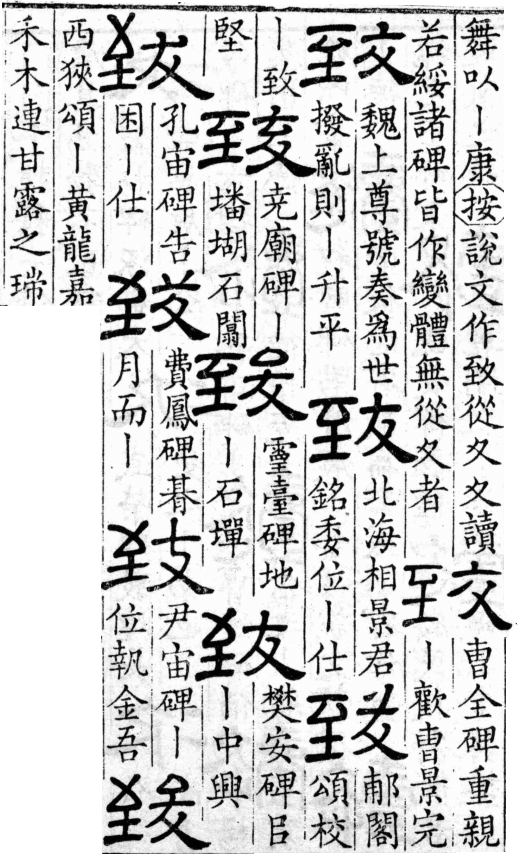 舞㕥丨康按說文作致從夊夊讀
若綏諸碑皆作變體無從夊者
致
曹全碑重親
丨歡曹景完
致
魏上尊號奏爲世
撥亂則丨升平
致
北海相景君
銘委位丨仕
致
郙閣
頌校
丨致
堅
致
堯廟碑丨
墦石
致
靈臺碑地
丨石墠
致
樊安碑㠯
丨中興
致
孔宙碑告
困丨仕
致
費鳳碑朞
月而丨
致
尹宙碑丨
位執金吾
致
西狹頌丨黃龍嘉
禾木連甘露之瑞